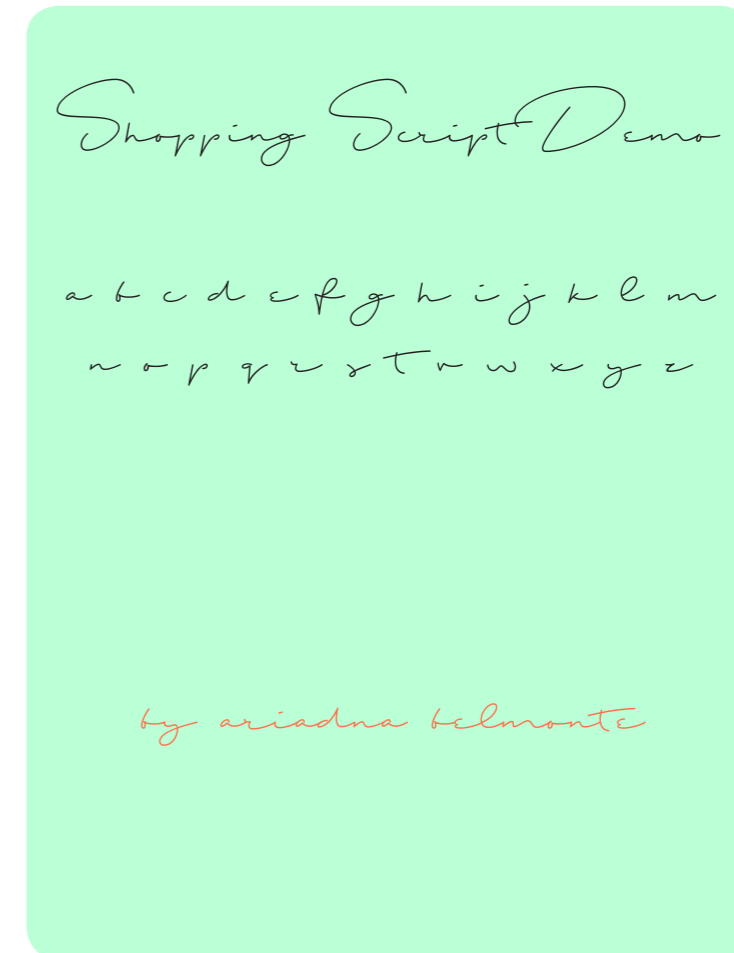 Shopping Script Demo
a b c d e f g h i j k l m
n o p q r s t v w x y z
by ariadna belmonte